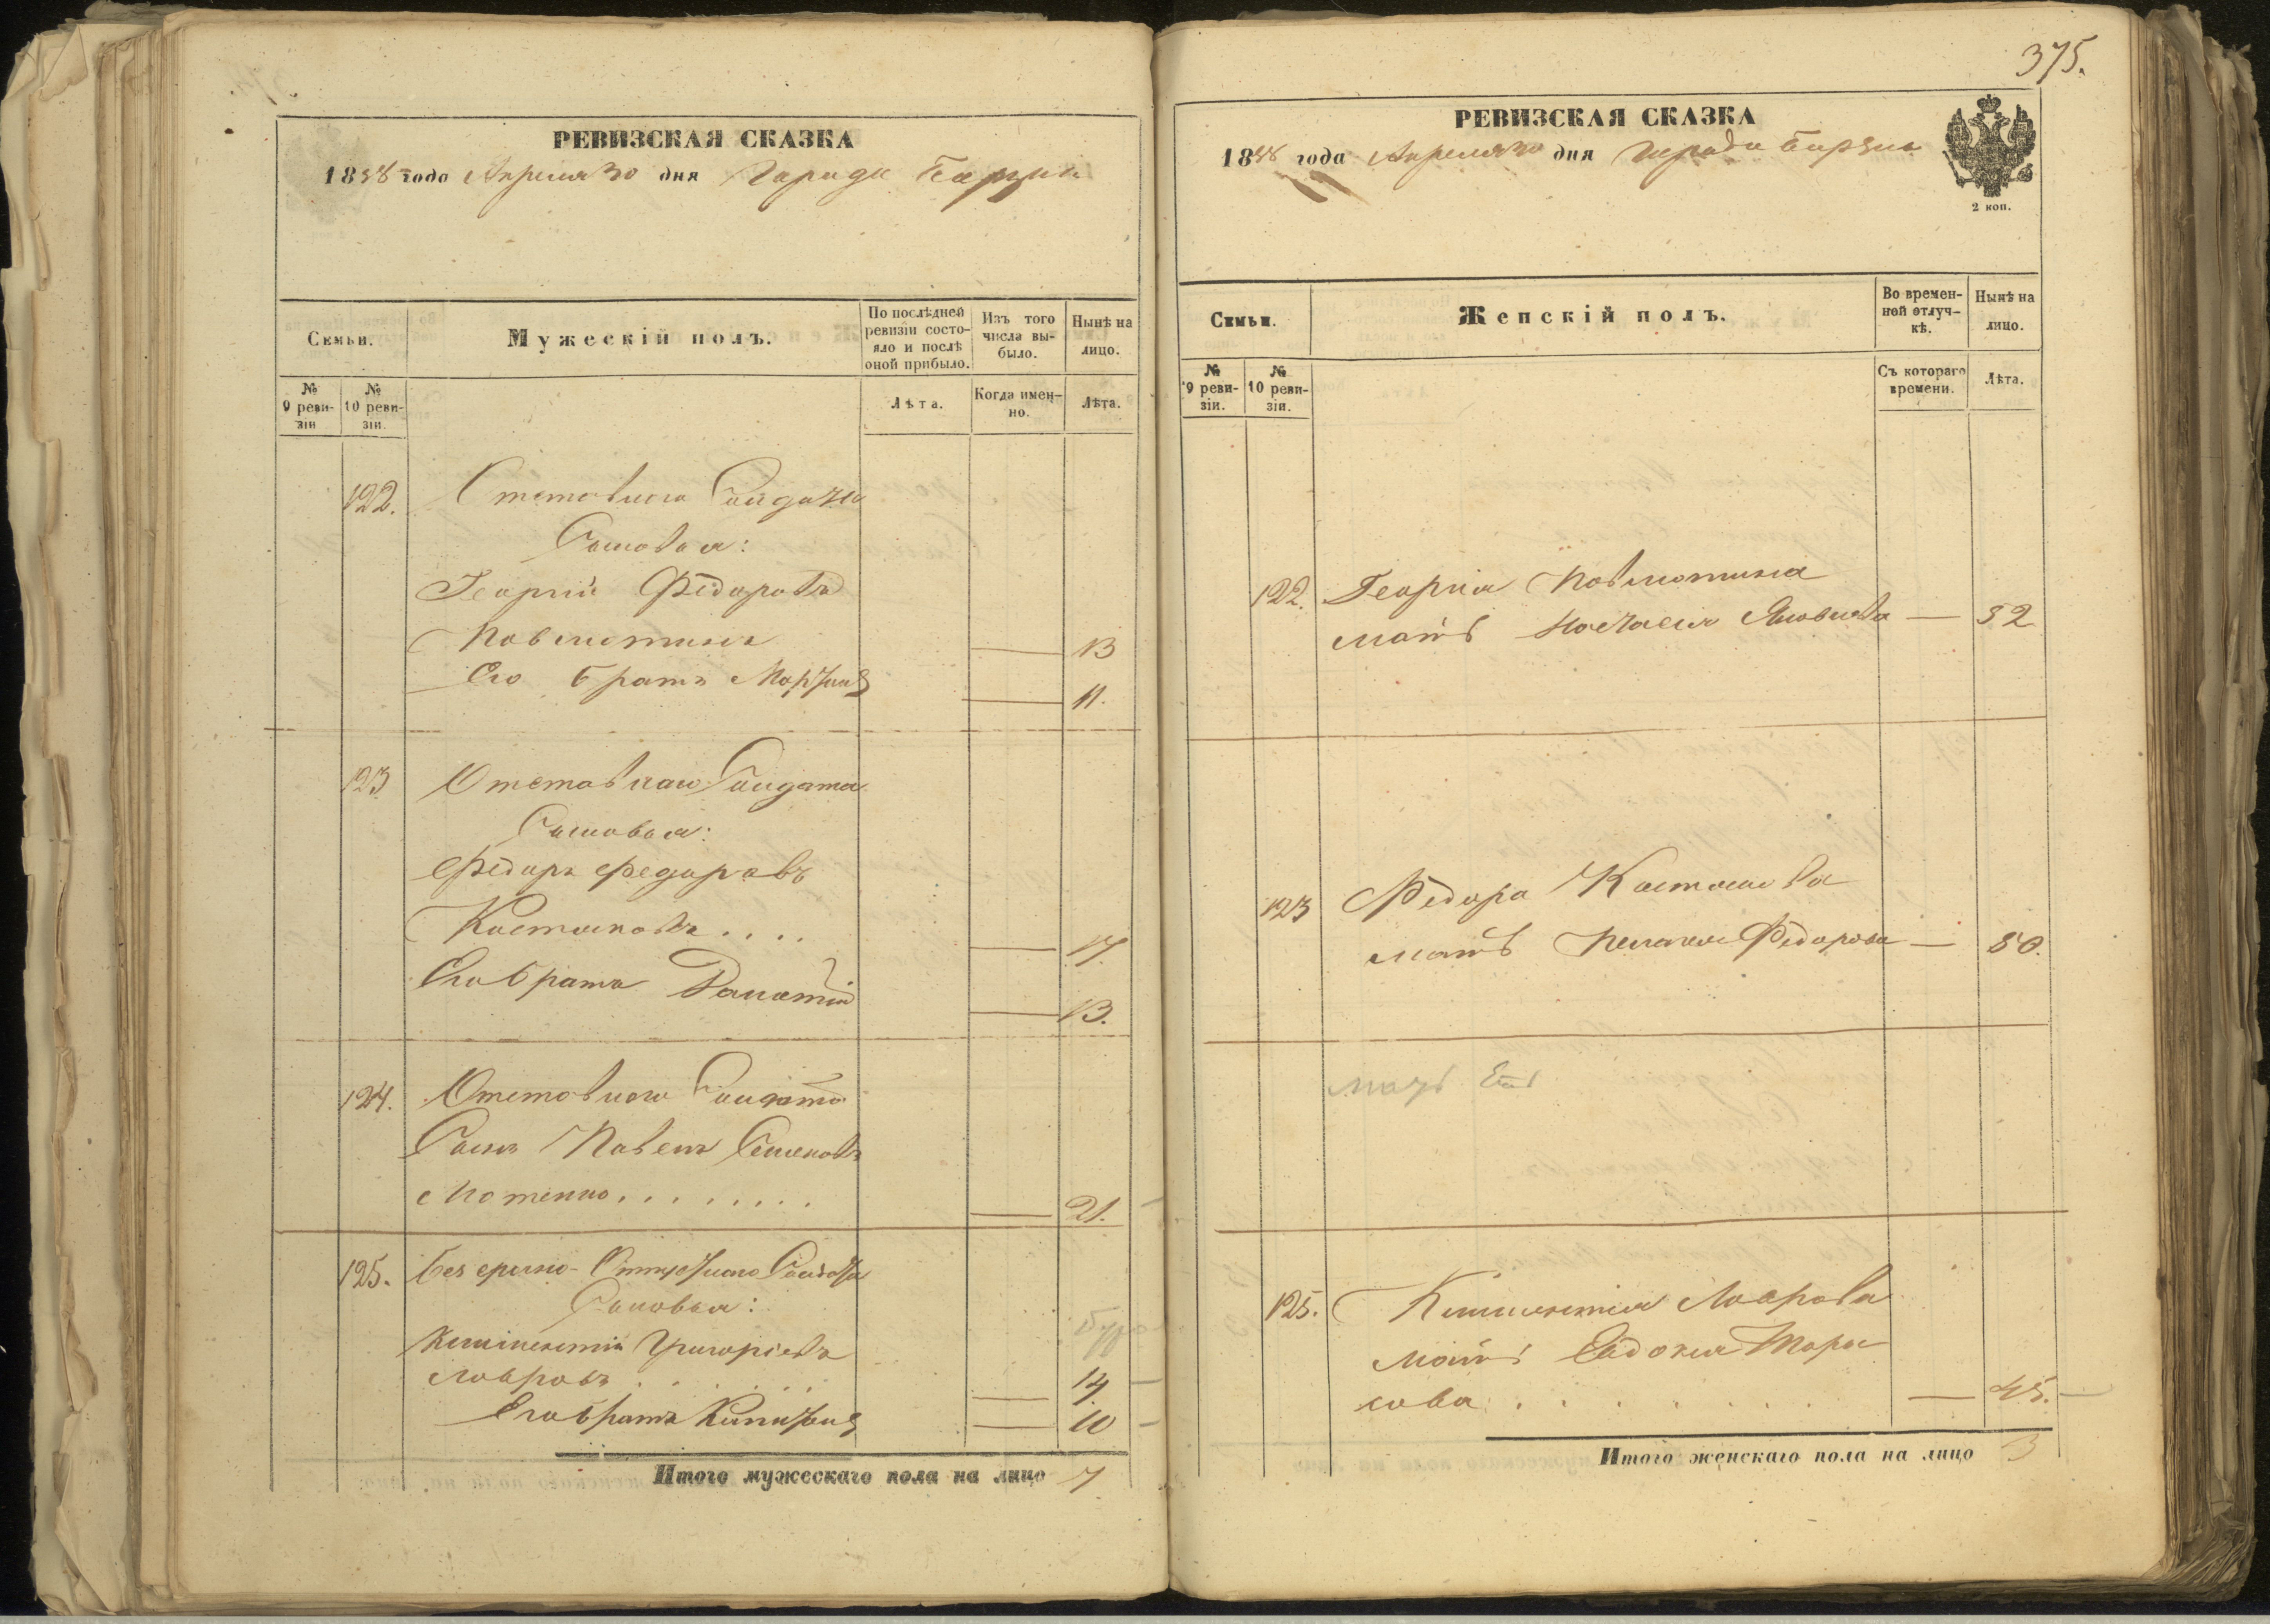 РЕВИЗСКАЯ СКАЗКА
1858 года Апреля 30 дня Города
Семьи.
Мужескій полъ.
По послѣдней ревизіи состо-
яло и послѣ
оной прибыло.
Изъ того
числа вы-
было.
Нынѣ на
лицо.
№
9 реви-
зіи
№
10 реви-
зіи.
Лѣта.
Когда имен-
но.
Лѣта.
122. Отставнаго Солдата
Сыновья:
Георгій Фёдоровъ
13
Его братъ 11.
123 Отставнаго Солдата
Сыновья:
Фёдоръ Федоровъ
17
Его братъ 13.
124. Отставнаго Солдата
Сынъ Павелъ Семеновъ
21.
125. Безсрочно-Отпускнаго Солдата
Сыновья:
Григорьевъ
Лавровъ 14
Его братъ 10
Итого мужескаго пола на лицо 7
375.
РЕВИЗСКАЯ СКАЗКА
1858 года Апреля 30 дня Города
2 коп.
Семьи.
Женскій полъ.
Во времен-
ной отлуч-
кѣ.
Нынѣ на
лицо.
№
9 реви-
зіи.
№
10 реви-
зіи.
Съ котораго
времени.
Лѣта.
122. Георгія
мать Яковлева — 52
123 Фёдора
мать Фёдорова — 50.
мать
125. Лаврова
мать Евдокия Тара
сова — 45.
Итого женскаго пола на лицо 3